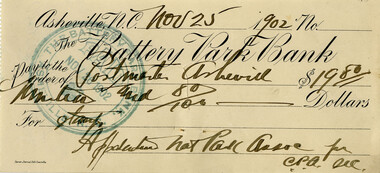 Asheville, N.C. Nov 25 1902 No.
The Battery Park Bank
Pay to the
order of Postmaster Asheville $19 80
Nineteen and 80/100 Dollars
For Stamps
Appalachian Nat Park Assoc